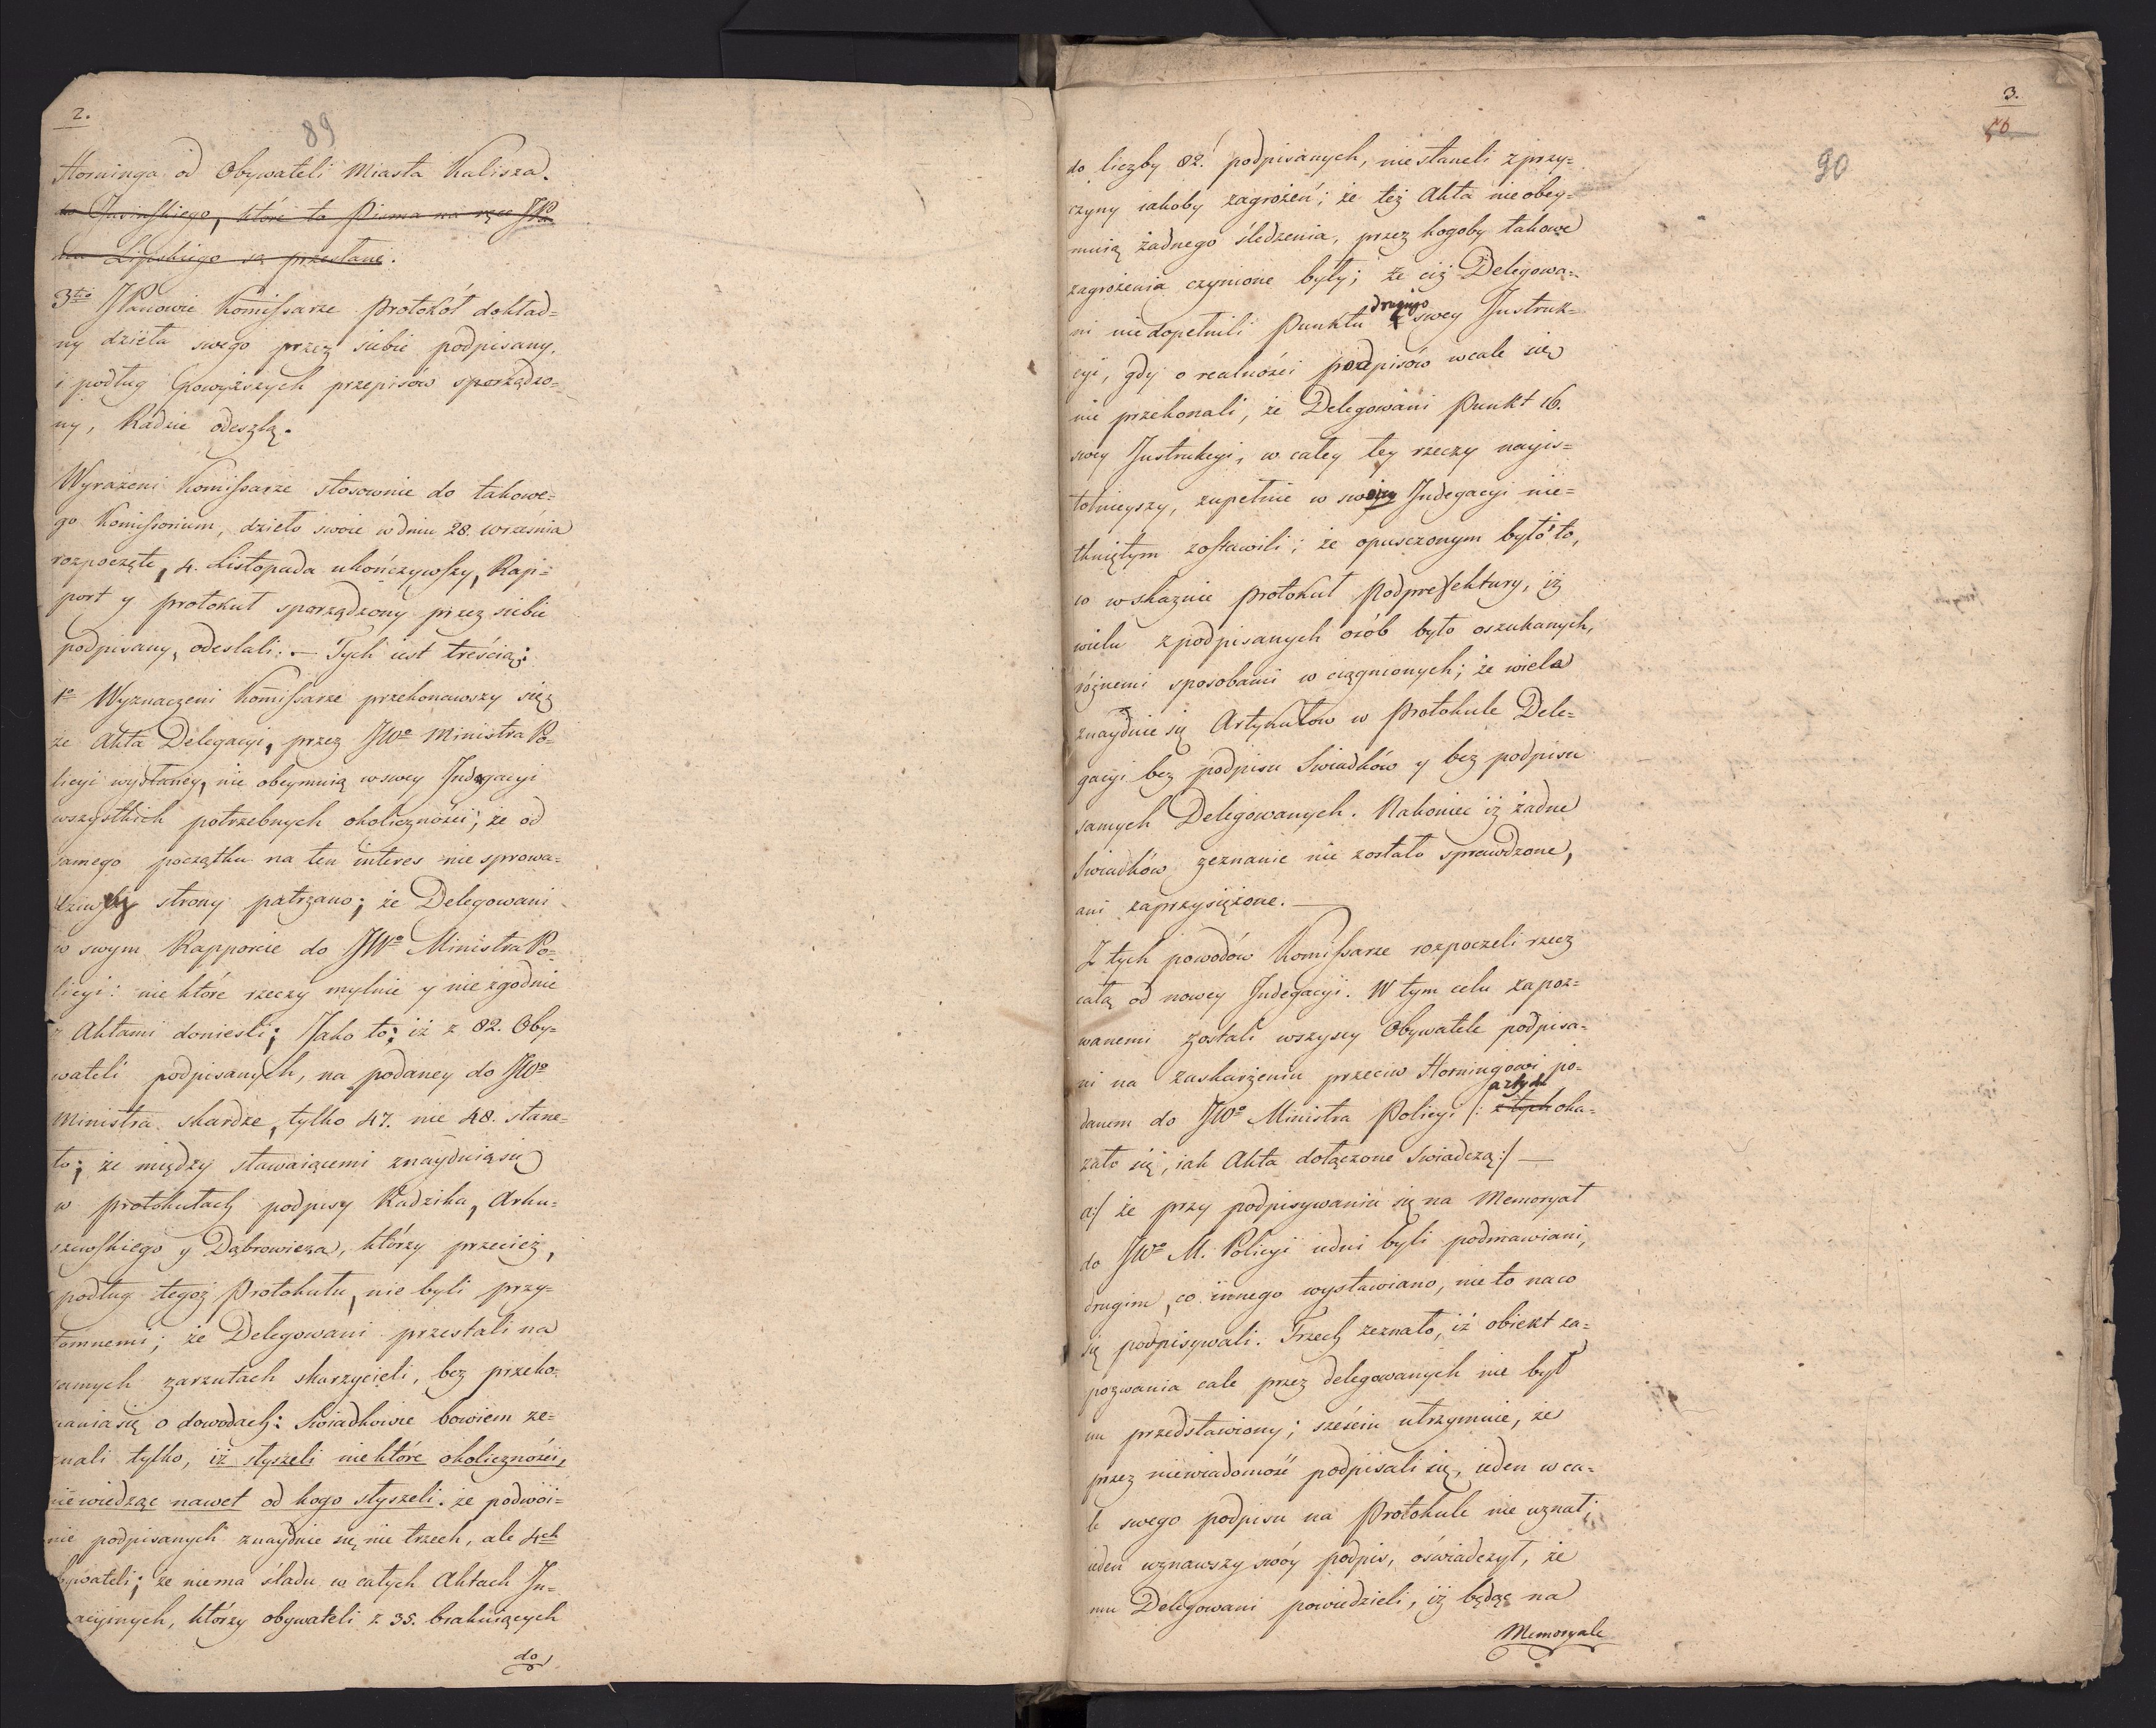 2.
89
Horninga od Obywateli Miasta Kalisza.
Jasinskiego, które to Pisma na ręce JW°
Lipskiego są przesłane.
3tio JPanowie Komissarze Protokół dokład=
ny dzieła swego przez siebie podpisany,
i podług powyższych przepisów sporządzo=
ny, Radzie odeszlą.
Wyrażeni Komissarze stosownie do takowe=
go Komissorium, dzieło swoie w dniu 28. września
rozpoczęte, 4. Listopada ukończywszy, Rap=
port y protokuł sporządzony przez siebie
podpisany, odesłali: — Tych iest treścią:
1° Wyznaczeni Komissarze przekonawszy się,
że Akta Delegacyi, przez JW° Ministra Po=
licyi wysłaney, nie obeymuią w swey Indagacyi
wszystkich potrzebnych okoliczności; że od
samego początku na ten interes nie z prawa=
dziwey strony patrzano; że Delegowani
w swym Rapporcie do JW° Ministra Po=
licyi: nie które rzeczy mylnie y nie zgodnie
z Aktami donieśli; Jako to; iż z 82. Oby=
wateli podpisanych, na podaney do JW°
Ministra skardze, tylko 47. nie 48. stane=
ło; że między stawaiącemi znayduią się
w protokułach podpisy Radzika, Arku=
szewskiego y Dąbrowicza, którzy przecież,
podług tegoż Protokułu, nie byli przy=
tomnemi; że Delegowani przestali na
samych zarzutach skarzycieli, bez przeko=
nania się o dowodach: Swiadkowie bowiem ze=
znali tylko, iż słyszeli nie które okoliczności,
nie wiedząc nawet od kogo słyszeli. że podwoi=
nie podpisanych znayduie się nie trzech, ale 4ch
bywateli; że nie ma śladu w całych Aktach In=
acyinych, którzy obywateli z 35. brakuiących
do
3.
90
do liczby 82. podpisanych, nie staneli z przy=
czyny iakoby zagrożeń; że też Akta nie obey=
muią żadnego śledzenia, przez kogoby takowe
zagrożenia czynione były; że ciż Delegowa=
ni nie dopełnili Punktu drugiego swey Instruk=
cyi, gdy o realności podpisów wcale się
nie przekonali, że Delegowani Punkt 16.
swey Instrukcyi, w całey tey rzeczy nayis=
totnieyszy, zupełnie w swoiey Indegacyi nie=
tkniętym zostawili; że opusczonym było to,
co wskazuie protokuł Podprefektury, iż
wielu z podpisanych osób było oszukanych,
różnemi sposobami wciągnionych; że wiele
znayduie się Artykułow w Protokule Dele=
gacyi bez podpisu Swiadków y bez podpisu
samych Delegowanych. Nakoniec iż żadne
Swiadków zeznanie nie zostało sprawdzone,
ani zaprzysiężone. —
Z tych powodów Komissarze rozpoczeli rzecz
całą od nowey Indegacyi. W tym celu zapoz=
wanemi zostali wszyscy Obywatele podpisa=
ni na zaskarżeniu przeciw Horningowi po=
danem do JW° Ministra Policyi /: a z tych z tych oka=
zało się, iak Akta dołączone swiadczą :/ —
a:/ że przy podpisywaniu się na Memoryał
do JW° M. Policyi iedni byli podmawiani,
drugim, co innego wystawiano, nie to na co
się podpisywali. Trzech zeznało, iż obiekt za=
pozwania cale przez delegowanych nie był
im przedstawiony; sześciu utrzymuie, że
przez niewiadomość podpisali się, ieden wca=
le swego podpisu na Protokule nie uznał;
ieden uznawszy swóy podpis, oświadczył, że
mu Delegowani powiedzieli, iż będąc na
Memoryale